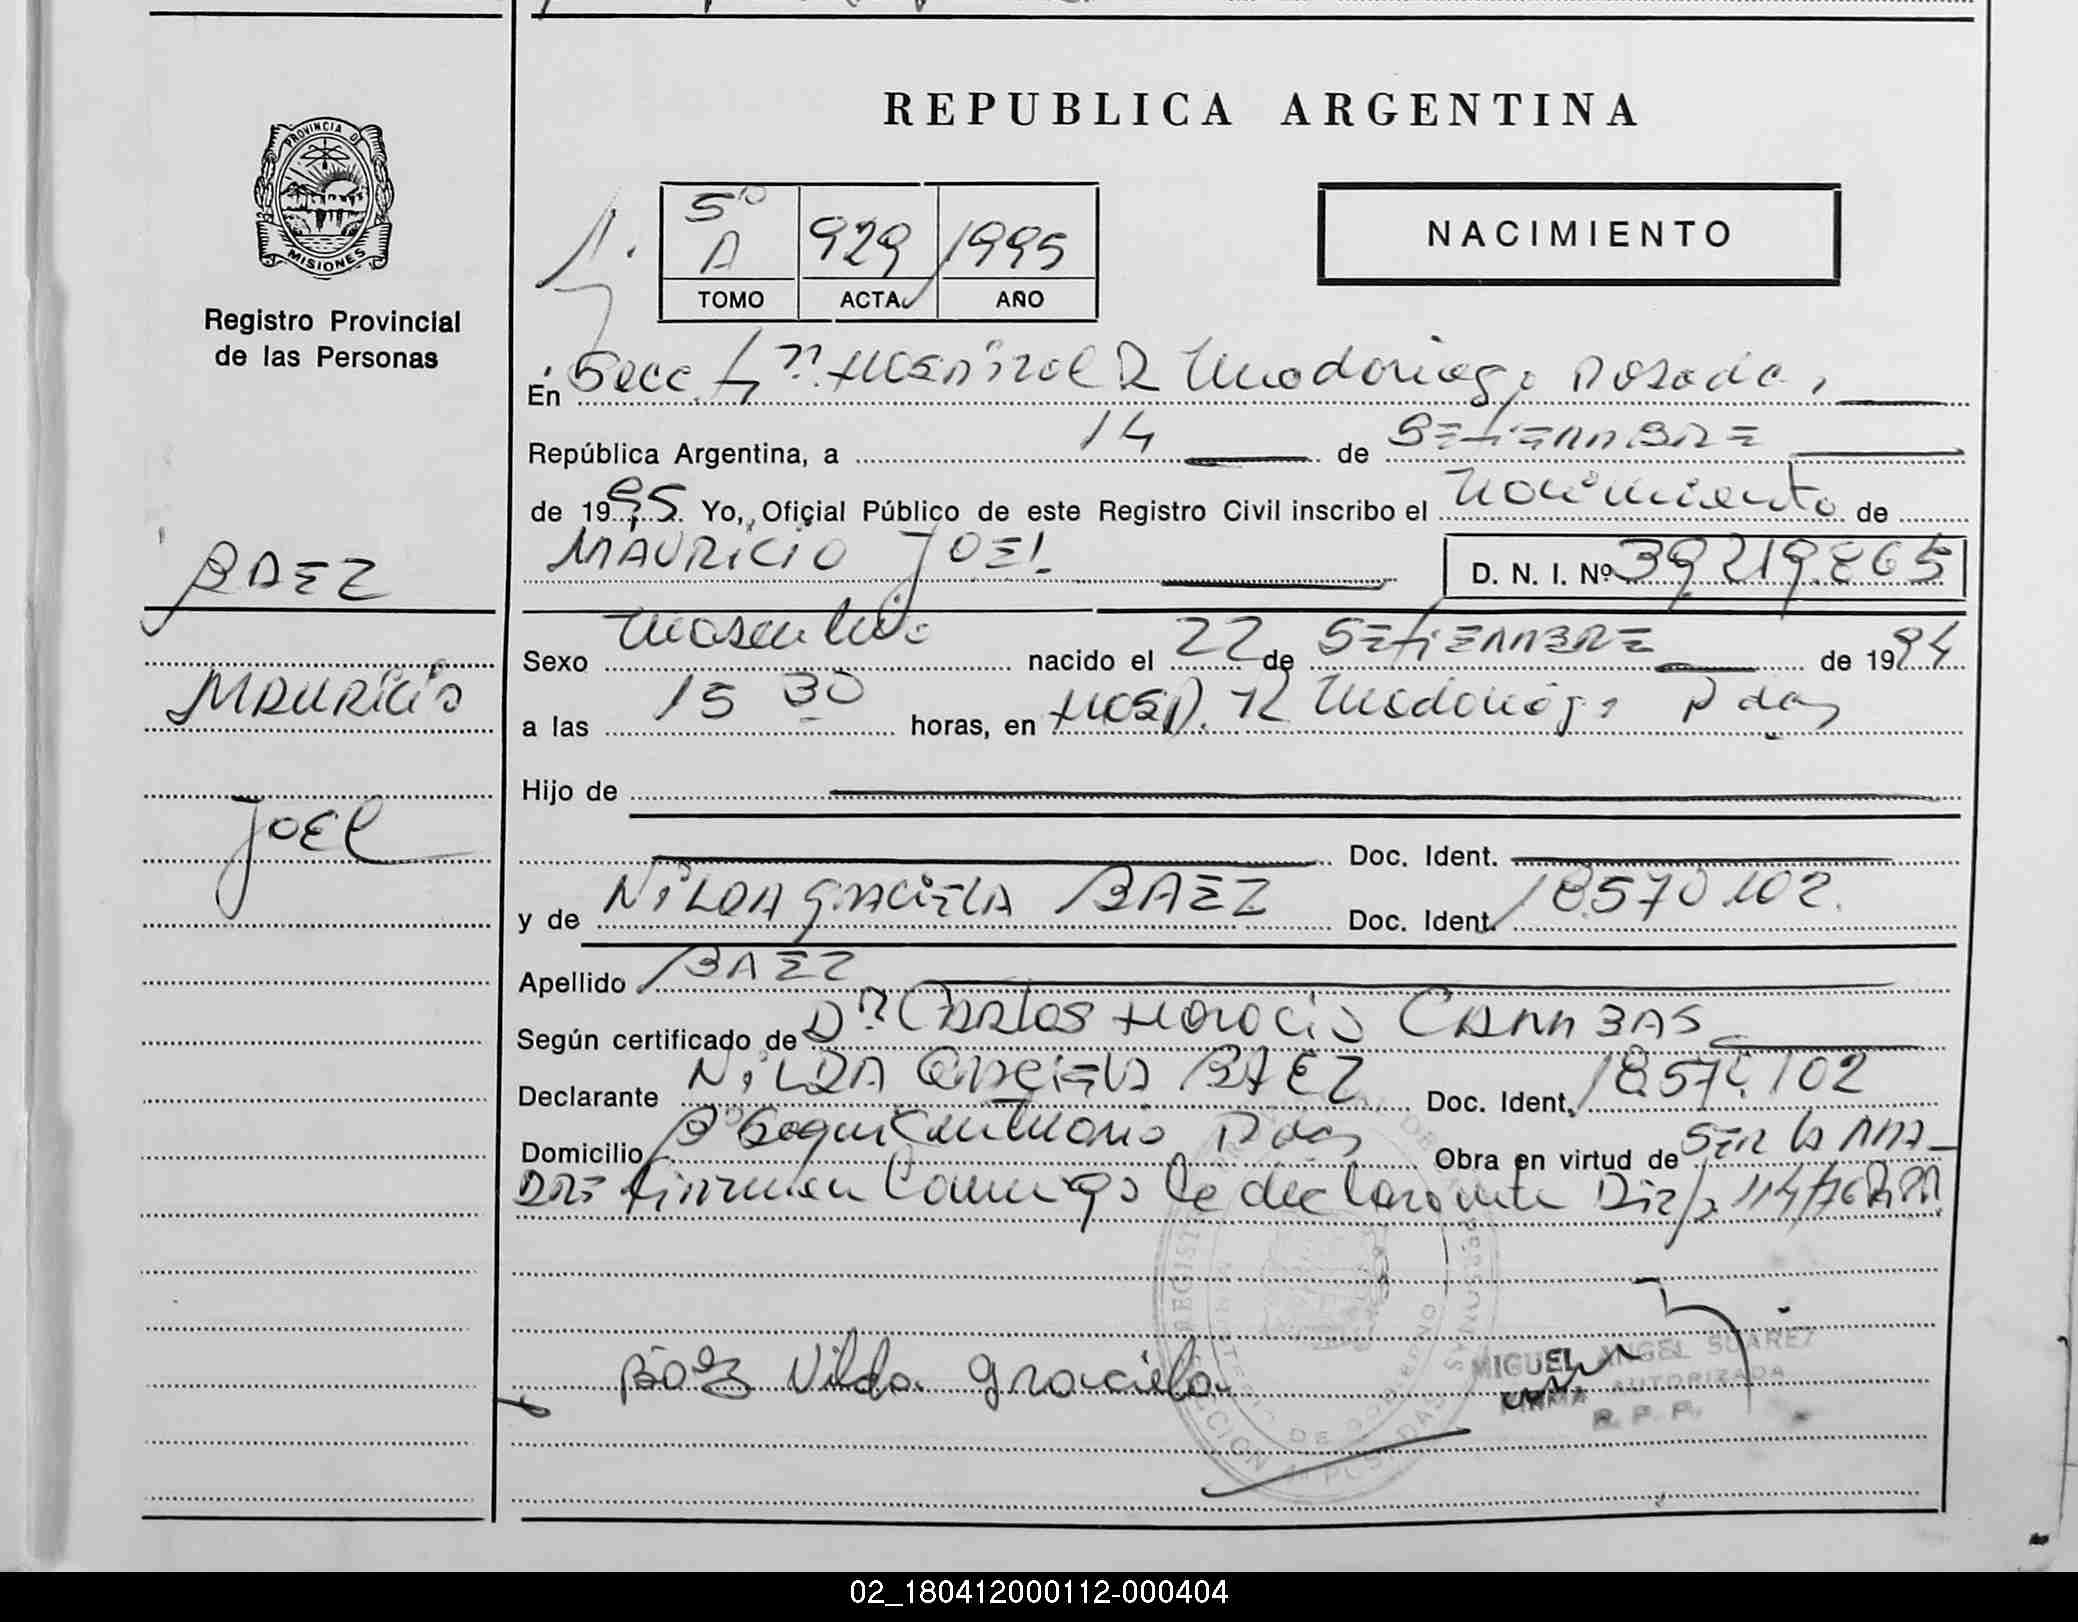 REPUBLICA ARGENTINA
PROVINCIA DE
MISIONES
Registro Provincial
de las Personas
5º A 929 1995
TOMO ACTA AÑO
NACIMIENTO
En Secc 4ta Hospital R Madariaga Posadas
República Argentina, a 14 de SETIEMBRE
de 1995 Yo, Oficial Público de este Registro Civil inscribo el nacimiento de
MAURICIO JOEL D. N. I. Nº 39.219.865
BAEZ
MAURICIO
JOEL
Sexo masculino nacido el 22 de SETIEMBRE de 1994
a las 15 30 horas, en HOSP. R Madariaga Pdas
Hijo de
Doc. Ident.
y de NILDA GRACIELA BAEZ Doc. Ident. 18.570.102.
Apellido BAEZ
Según certificado de Dr CARLOS Horacio
Declarante NILDA GRACIELA BAEZ Doc. Ident. 102
Domicilio Bº Sesquicentenario Pdas Obra en virtud de SER la MA-
DRE Firman conmigo la declarante
Baez Nilda Graciela
MIGUEL ANGEL SUAREZ
FIRMA AUTORIZADA
R. P. P.
02_180412000112-000404